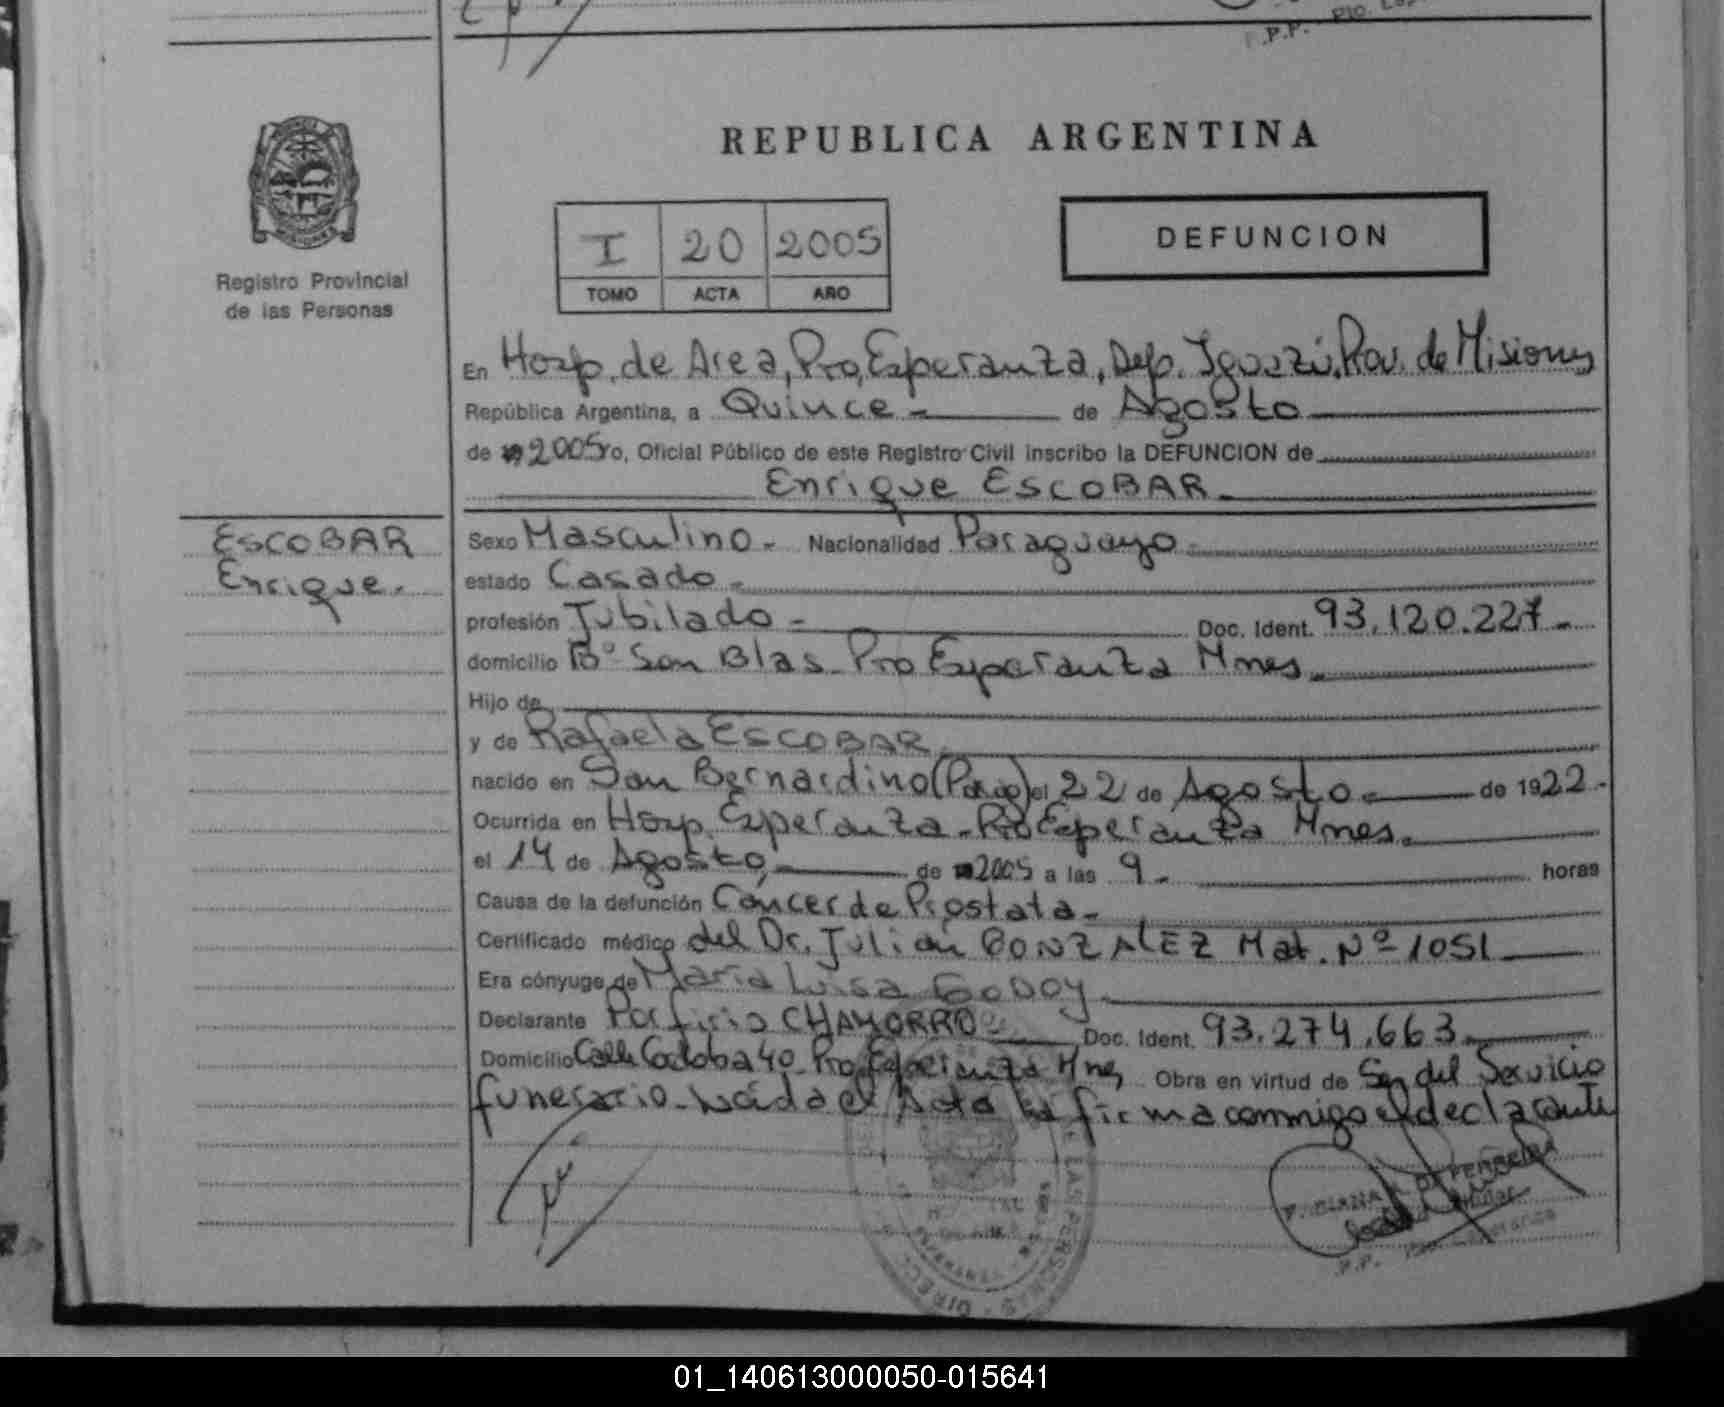 P.P. Pto.
REPUBLICA ARGENTINA
PROVINCIA DE
MISIONES
Registro Provincial
de las Personas
I 20 2005
TOMO ACTA AÑO
DEFUNCION
En Hosp. de Area, Pto, Esperanza, Dep. Iguazú, Prov. de Misiones
República Argentina, a Quince - de Agosto
de 2005 yo, Oficial Público de este Registro Civil inscribo la DEFUNCION de
Enrique ESCOBAR.
ESCOBAR
Enrique.
Sexo Masculino. Nacionalidad Paraguayo
estado Casado.
profesión Jubilado - Doc. Ident. 93.120.227.
domicilio Bº San Blas. Pto Esperanza Mnes.
Hijo de
y de Rafaela ESCOBAR.
nacido en San Bernardino (Parag) el 22 de Agosto. de 1922.
Ocurrida en Hosp. Esperanza. Pto Esperanza Mnes.
el 14 de Agosto, de 2005 a las 9. horas
Causa de la defunción Cáncer de Prostata.
Certificado médico del Dr. Julián GONZALEZ Mat. Nº 1051
Era cónyuge de María Luisa GODOY.
Declarante Porfirio CHAMORRO Doc. Ident. 93.274.663.
Domicilio Calle Cordoba 40 Pto. Esperanza Mnes Obra en virtud de Ser del Servicio
funerario. Leída el Acta la firma conmigo el declarante
DIANA
Titular
P.P. Pto. Esperanza
LAS PERSONAS DIRECC.
01_140613000050-015641